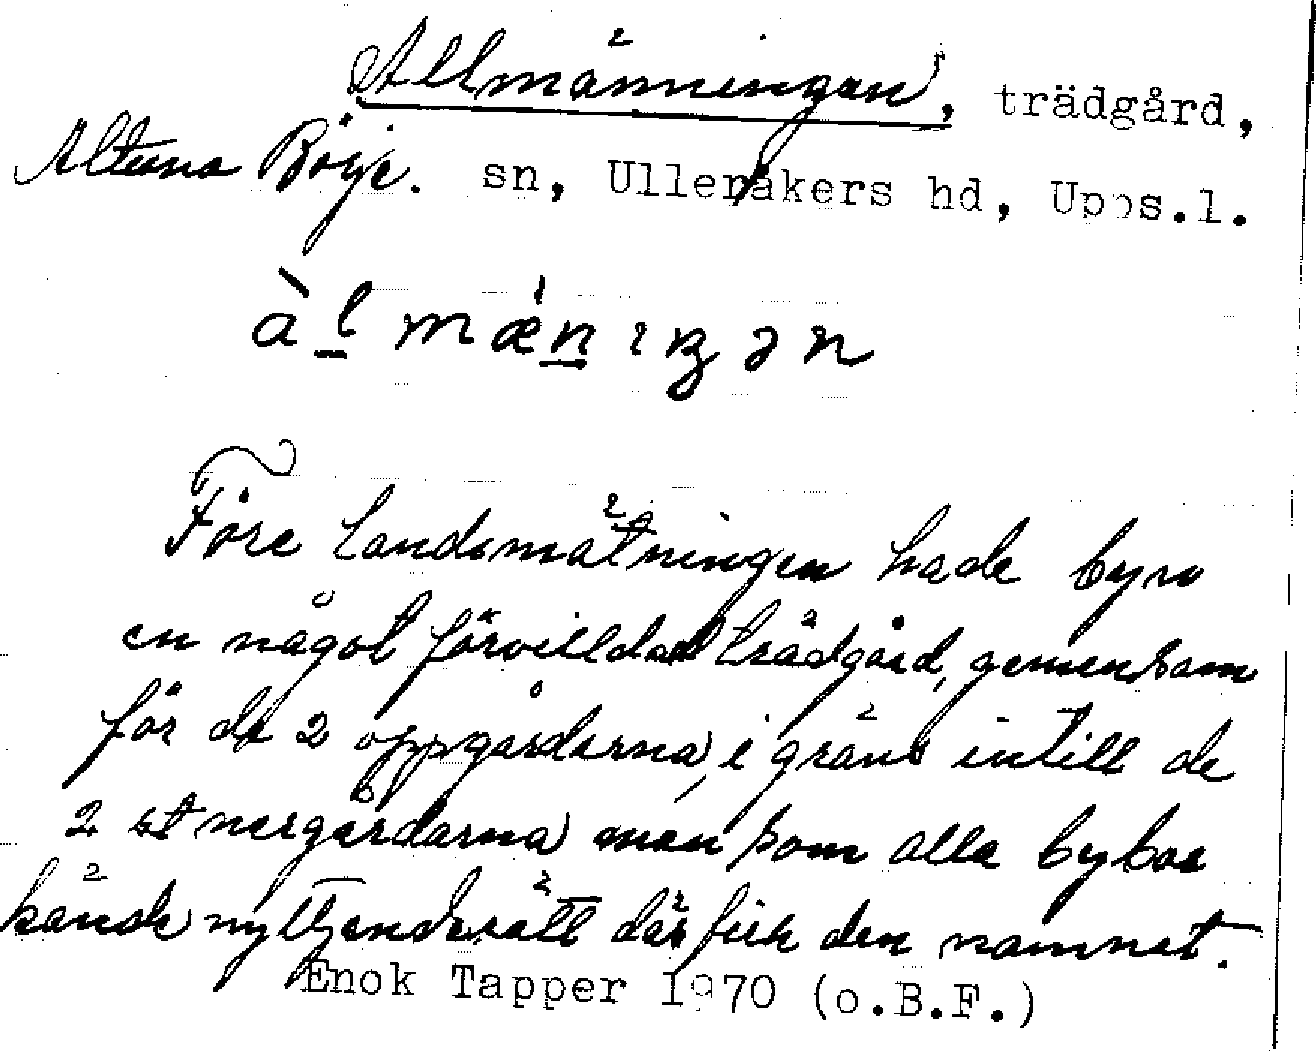 Allmänningen, trädgård,
Altuna Börje. sn, Ulleråkers hd, Upps.l.
àl mænıŋən
Före landsmätningen hade byn
en något förvildad trädgård, gemensam
för de 2 oppgårdarna, i gräns intill de
2 st nergårdarna men som alla bybor
kände nyttjanderätt där fick den namnet.
Enok Tapper 1970 (o.B.F.)